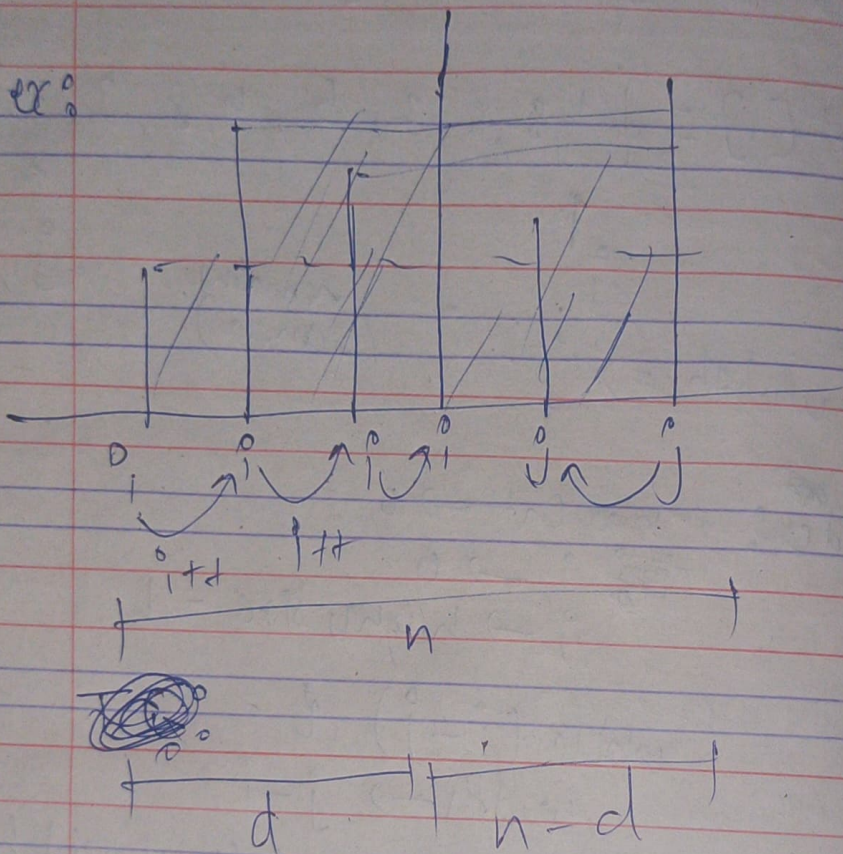 ex:
i i i i j j
i++ i++
n
d n-d